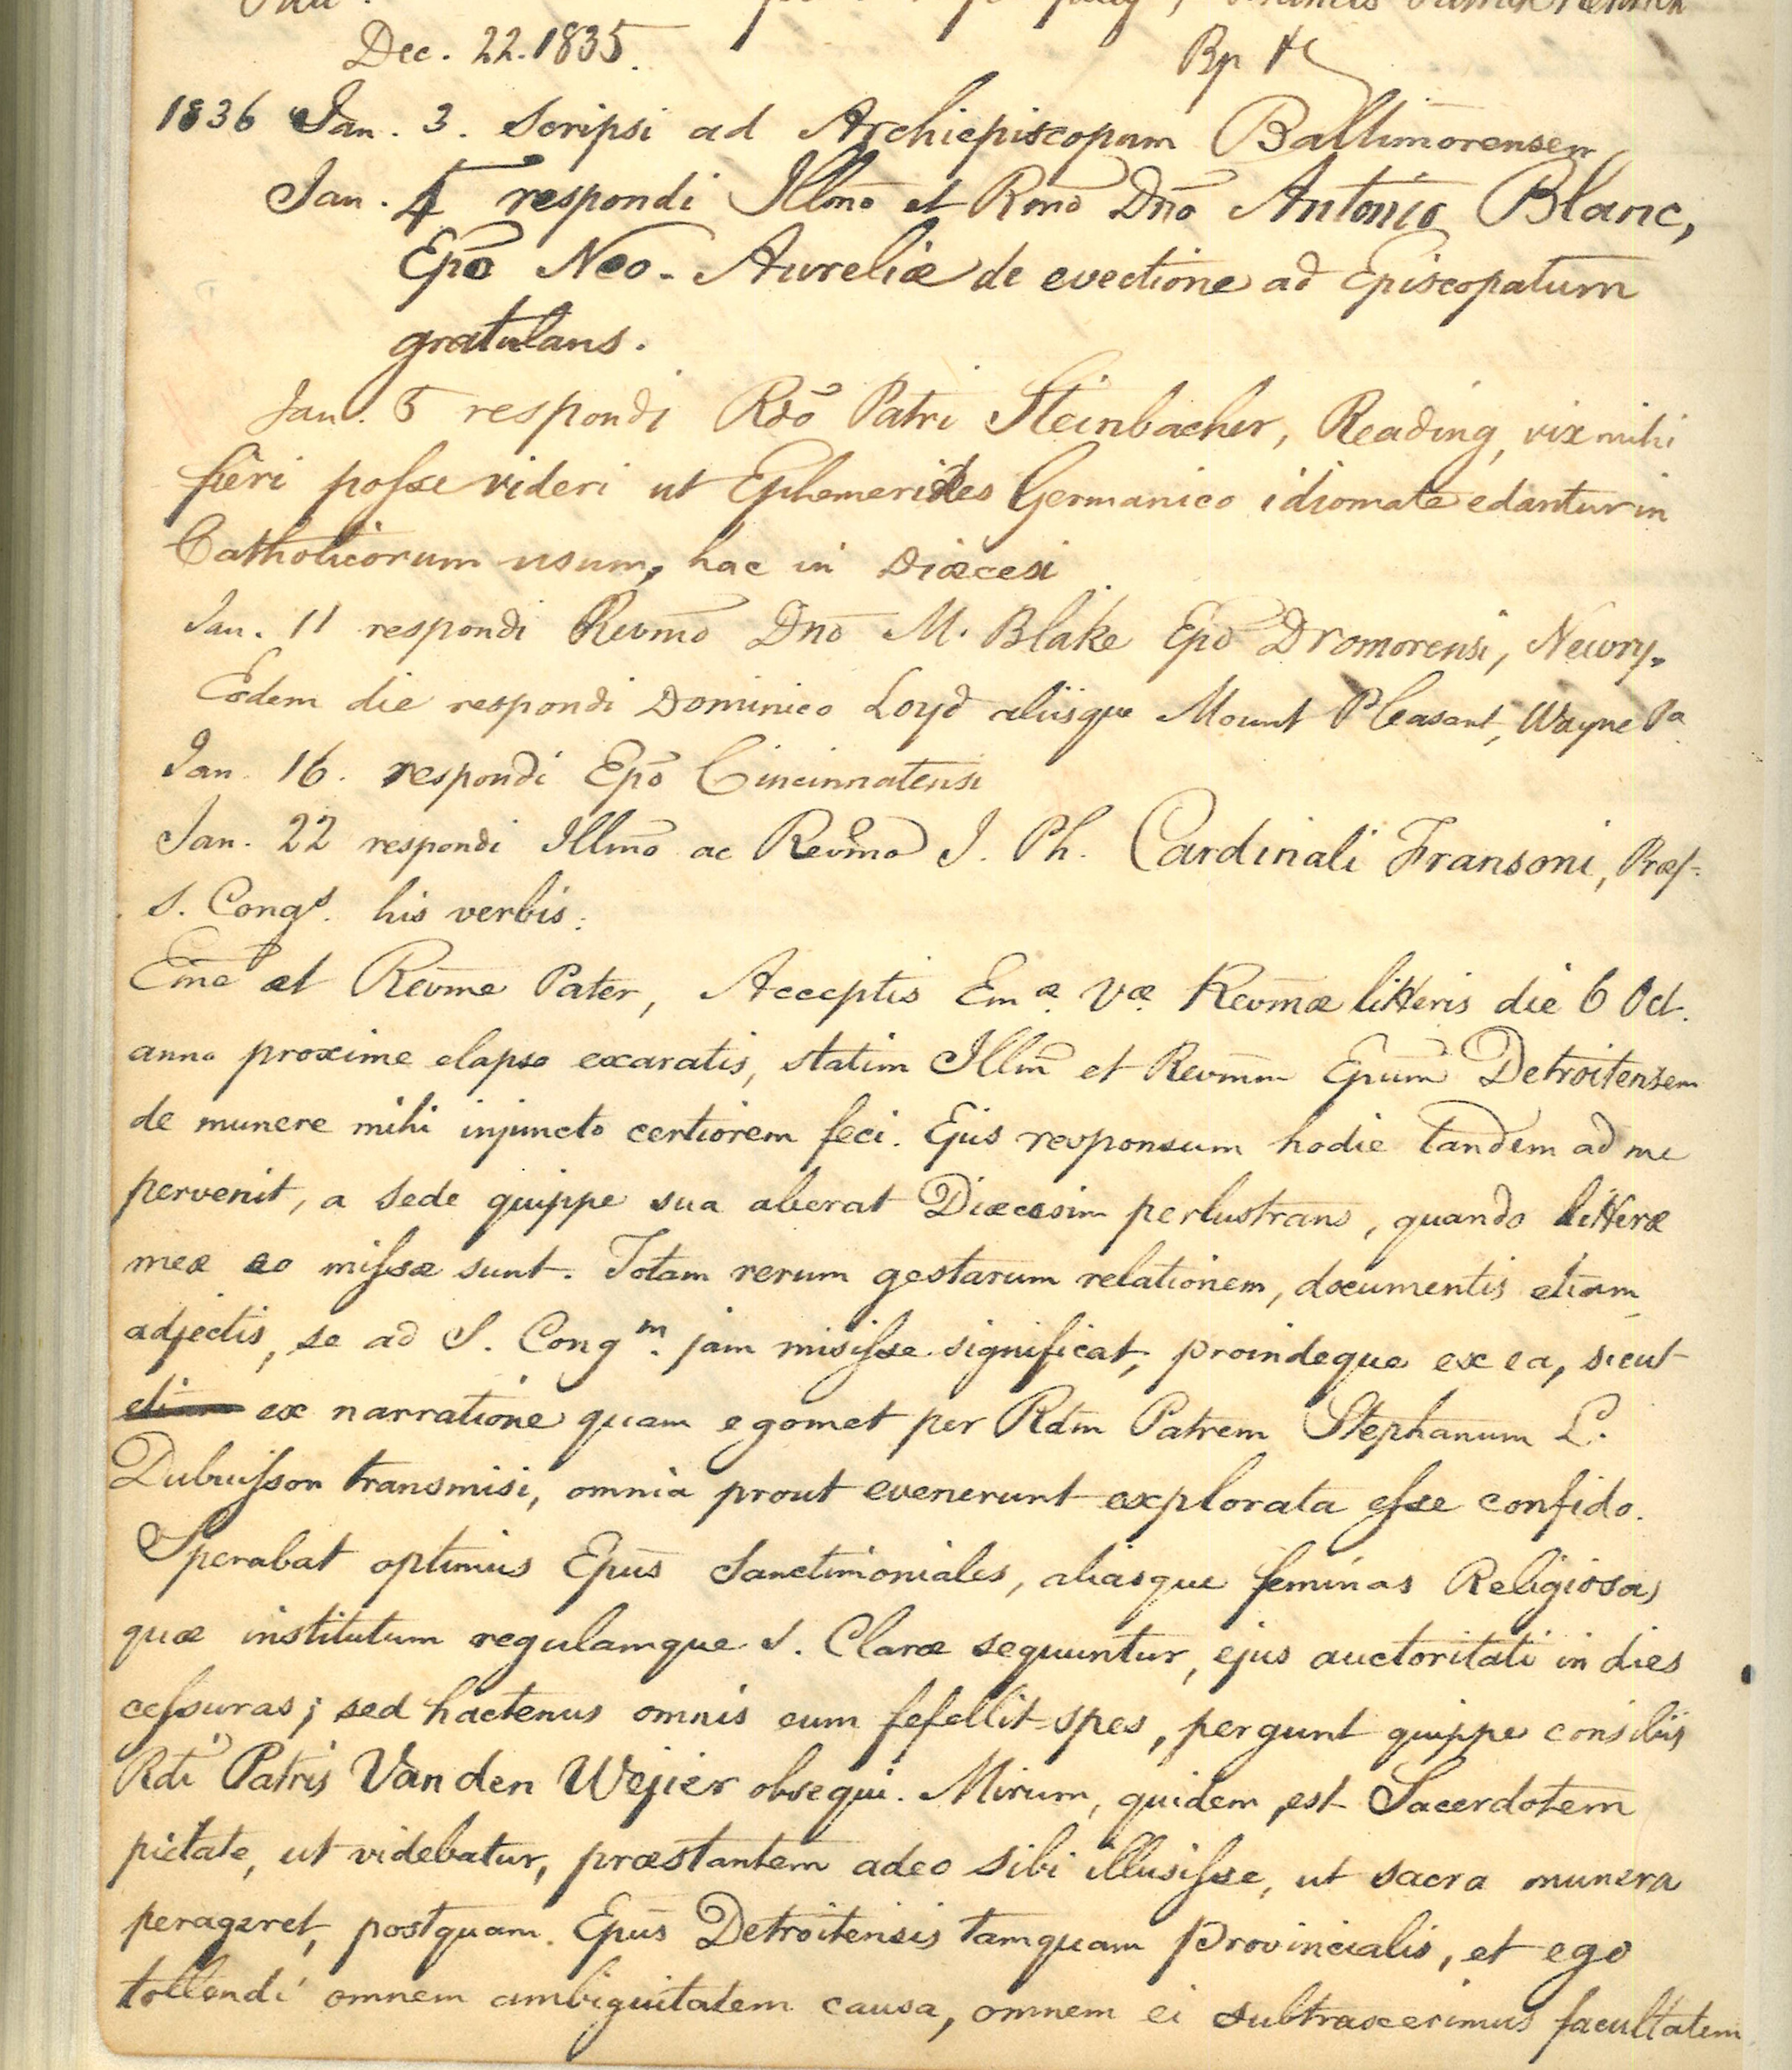 Dec. 22. 1835.
Bp
1836 Jan. 3. Scripsi ad Archiepiscopum Baltimorensem
Jan. 4 respondi Illmo et Rmo Dno Antonio Blanc,
Epo Neo-Aureliæ de evectione ad Episcopatum
gratulans.
Jan. 5 respondi Rdo Patri Steinbacher, Reading, vix mihi
fieri posse videri ut Ephemerides Germanico idiomate edantur in
Catholicorum usum, hac in Diœcesi
Jan. 11 respondi Revmo Dno M. Blake Epo Dromorensi, Newry.
Eodem die respondi Dominico Loyd aliisque Mount Pleasant, Wayne Pa
Jan. 16. respondi Epo Cincinnatensi
Jan. 22 respondi Illmo ac Revmo J. Ph. Cardinali Fransoni, Præf.
S. Congs. his verbis:
Eme et Revme Pater, Acceptis Emæ. Væ. Revmæ litteris die 6 Oct.
anno proxime elapso exaratis, statim Illm et Revmm Epum Detroitensem
de munere mihi injuncto certiorem feci. Ejus responsum hodie tandem ad me
pervenit, a sede quippe sua aberat Diœcesim perlustrans, quando litteræ
meæ eo missæ sunt. Totam rerum gestarum relationem, documentis etiam
adjectis, se ad S. Congm. jam misisse significat, proindeque ex ea, sicut
etiam ex narratione quam egomet per Rdm Patrem Stephanum L.
Dubuisson transmisi, omnia prout evenerunt explorata esse confido.
Sperabat optimus Epus Sanctimoniales, aliasque feminas Religiosas
quæ institutum regulamque S. Claræ sequuntur, ejus auctoritati in dies
cessuras; sed hactenus omnis eum fefellit spes, pergunt quippe consiliis
Rdi Patris Van den Wejier obsequi. Mirum, quidem, est Sacerdotem
pietate, ut videbatur, præstantem adeo sibi illusisse, ut sacra munera
perageret, postquam Epus Detroitensis tamquam Provincialis, et ego
tollendi omnem ambiguitatem causa, omnem ei subtraxerimus facultatem